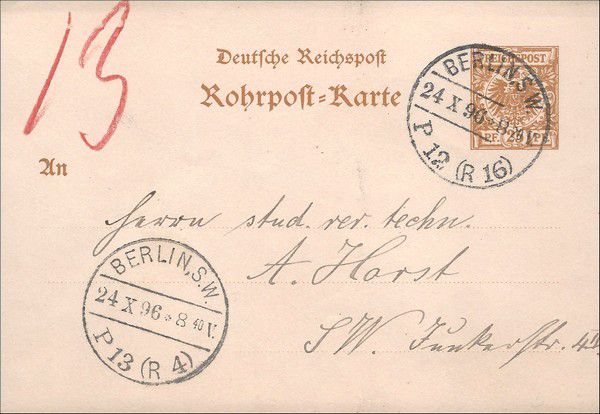 13
Deutsche Reichspost
Rohrpost-Karte
REICHSPOST
25 PF
BERLIN, S.W.
24 X 96 * 8
P 12 (R 16)
An
Herrn stud. rer. techn.
A. Horst
S.W. Junkerstr.
BERLIN, S.W.
24 X 96 * 8 40 V.
P 13 (R 4)